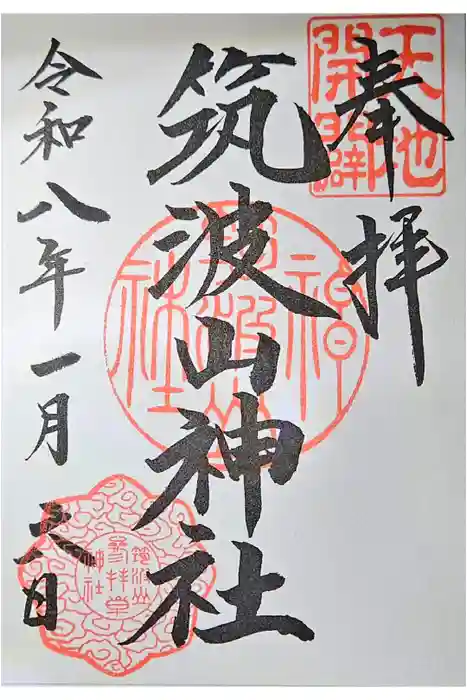 奉拝
天地
開闢
筑波山神社
筑波山
神社
令和八年一月六日
筑波山
参拝章
神社